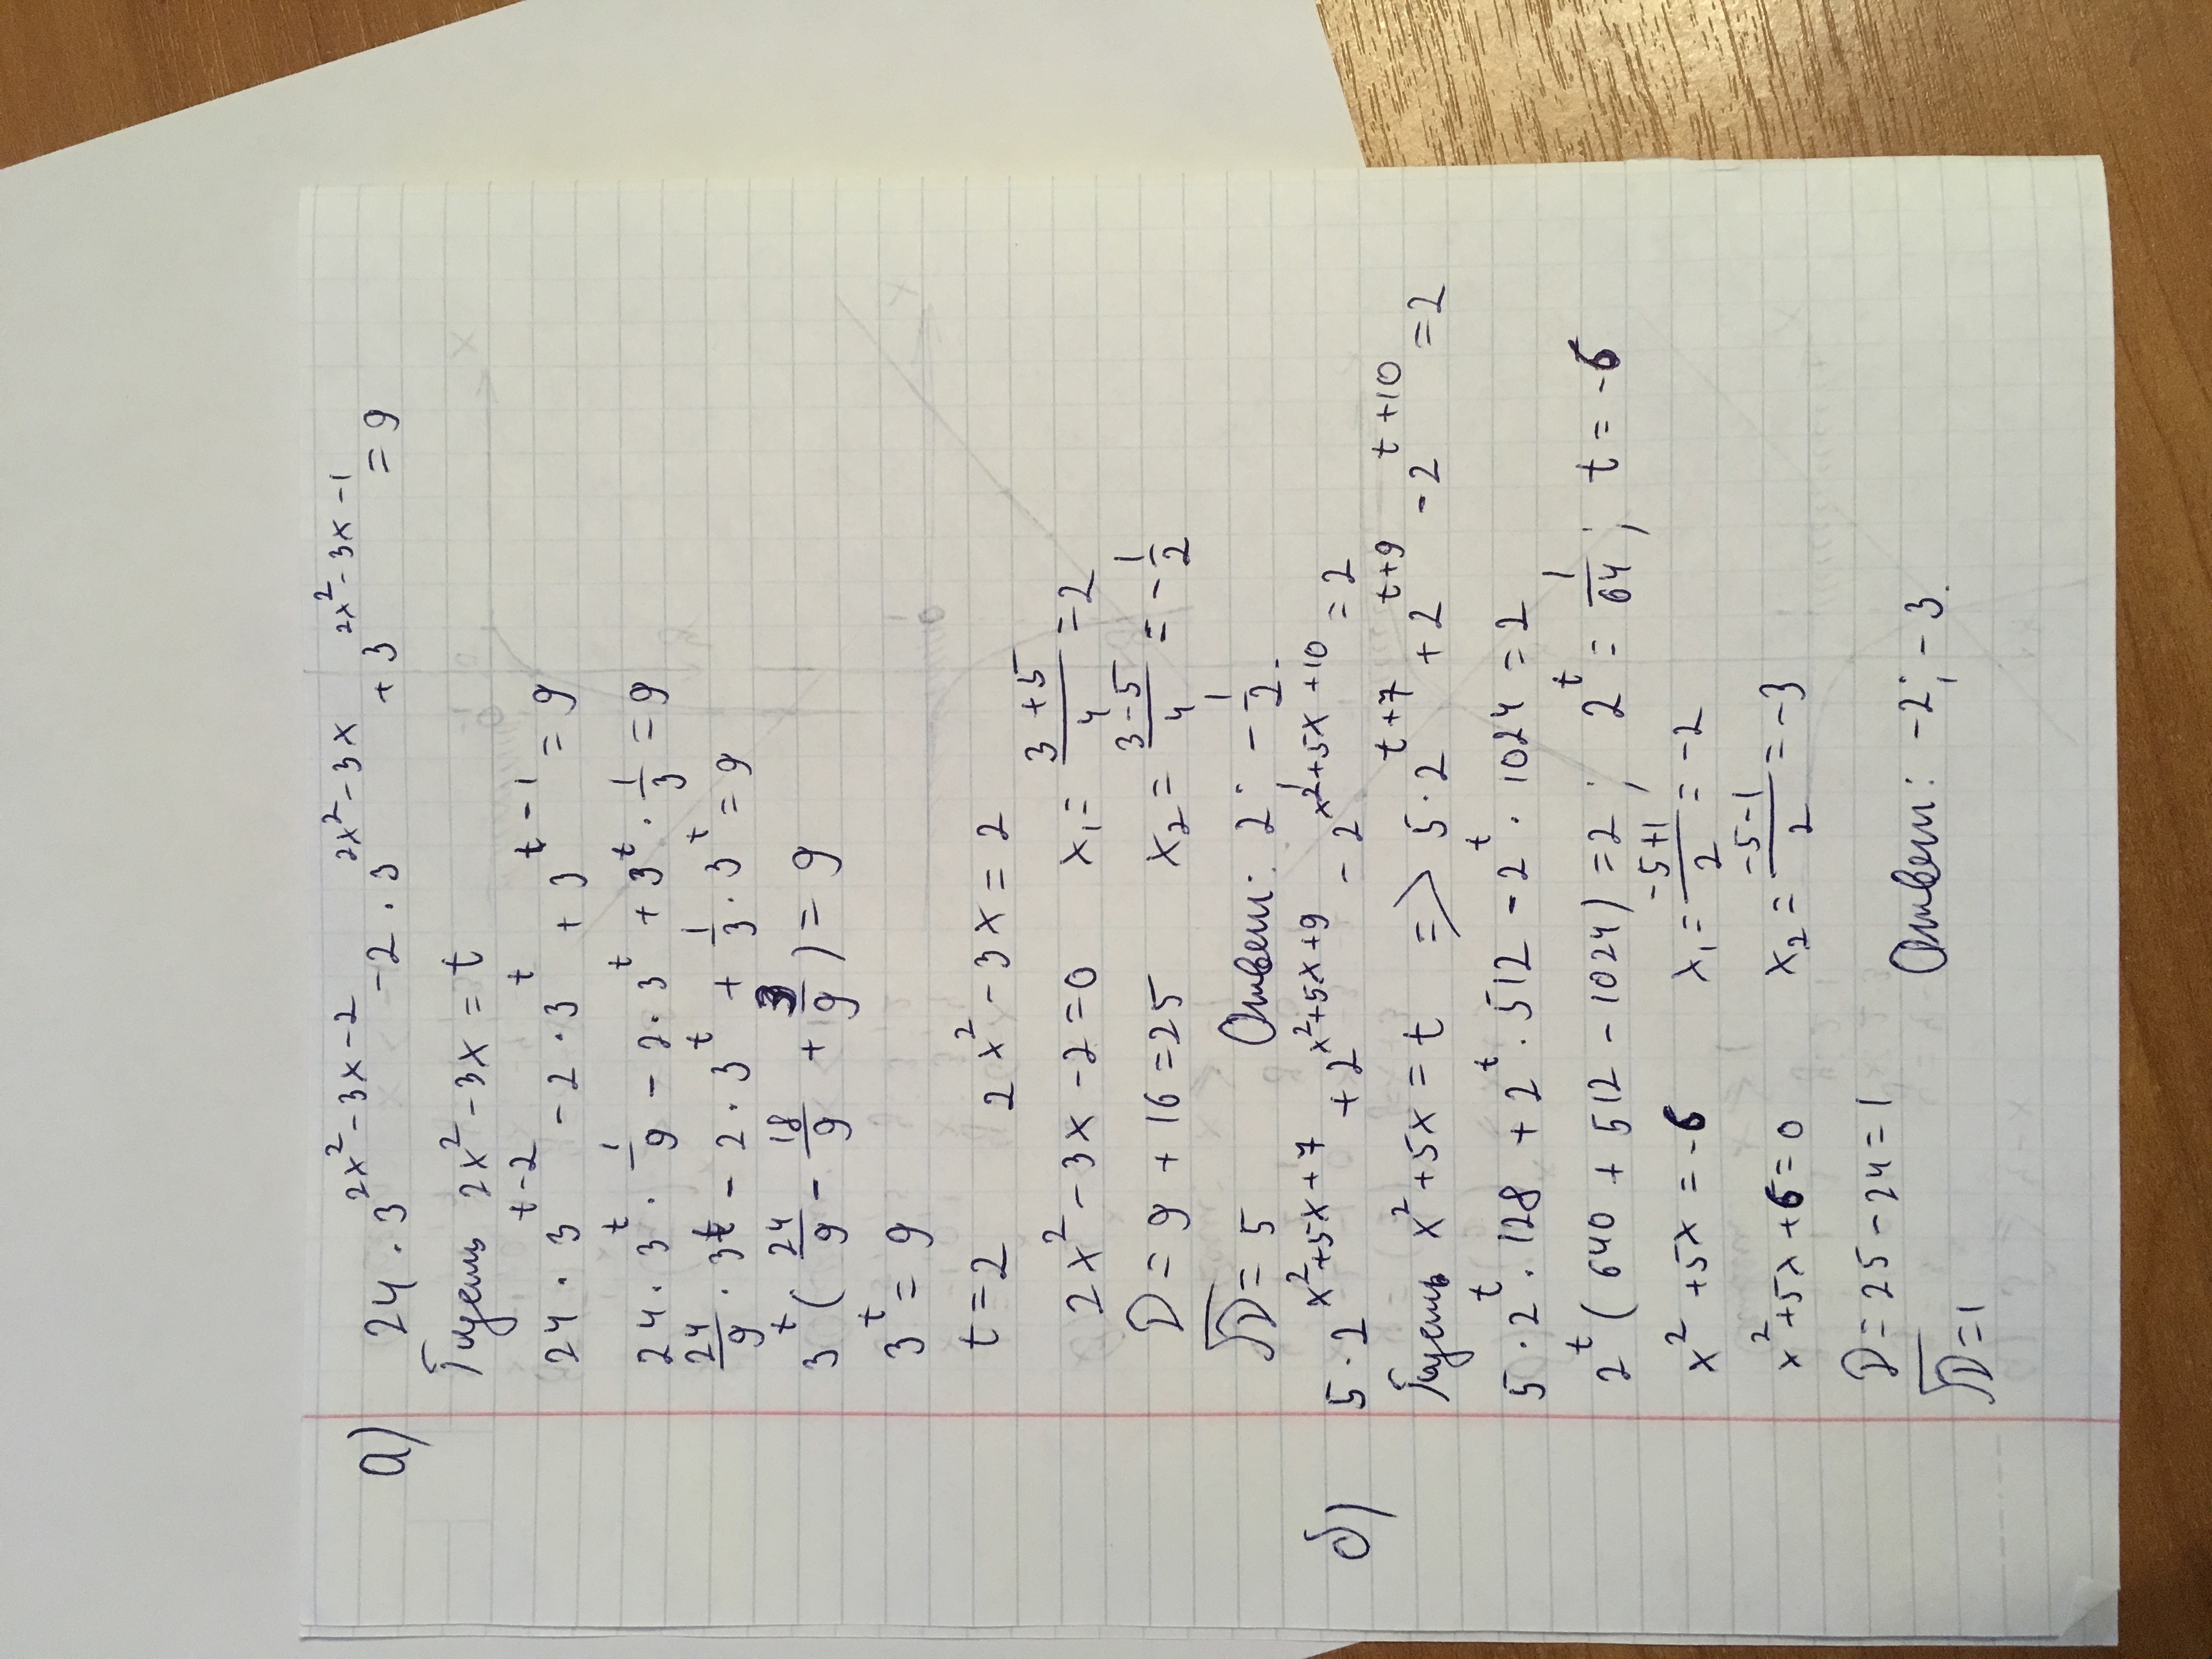 а) 24 · 3^(2x²-3x-2) - 2 · 3^(2x²-3x) + 3^(2x²-3x-1) = 9
Пусть 2x² - 3x = t
24 · 3^(t-2) - 2 · 3^t + 3^(t-1) = 9
24 · 3^t · 1/9 - 2 · 3^t + 3^t · 1/3 = 9
24/9 · 3^t - 2 · 3^t + 1/3 · 3^t = 9
3^t (24/9 - 18/9 + 3/9) = 9
3^t = 9
t = 2 2x² - 3x = 2
2x² - 3x - 2 = 0 x₁ = (3+5)/4 = 2
D = 9 + 16 = 25 x₂ = (3-5)/4 = -1/2
√D = 5 Ответ: 2; -1/2.
б) 5 · 2^(x²+5x+7) + 2^(x²+5x+9) - 2^(x²+5x+10) = 2
Пусть x² + 5x = t => 5 · 2^(t+7) + 2^(t+9) - 2^(t+10) = 2
5 · 2^t · 128 + 2^t · 512 - 2^t · 1024 = 2
2^t (640 + 512 - 1024) = 2; 2^t = 1/64; t = -6
x² + 5x = -6 x₁ = (-5+1)/2 = -2
x² + 5x + 6 = 0 x₂ = (-5-1)/2 = -3
D = 25 - 24 = 1
√D = 1 Ответ: -2; -3.